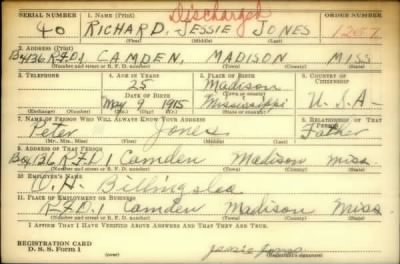 Discharged
SERIAL NUMBER 1. NAME (Print) ORDER NUMBER
40 RICHARD JESSIE JONES 1257
(First) (Middle) (Last)
2. ADDRESS (Print)
Bx136 R.F.D.1 CAMDEN, MADISON MISS
(Number and street or R. F. D. number) (Town) (County) (State)
3. TELEPHONE 4. AGE IN YEARS 5. PLACE OF BIRTH 6. COUNTRY OF CITIZENSHIP
25 Madison
DATE OF BIRTH (Town or county)
May 9 1915 Mississippi U.S.A.
(Exchange) (Number) (Mo.) (Day) (Yr.) (State or country)
7. NAME OF PERSON WHO WILL ALWAYS KNOW YOUR ADDRESS 8. RELATIONSHIP OF THAT PERSON
Peter Jones Father
(Mr., Mrs., Miss) (First) (Middle) (Last)
9. ADDRESS OF THAT PERSON
Bx136 R.F.D.1 Camden Madison Miss
(Number and street or R. F. D. number) (Town) (County) (State)
10. EMPLOYER'S NAME
Billingslea
11. PLACE OF EMPLOYMENT OR BUSINESS
R.F.D.1 Camden Madison Miss
(Number and street or R. F. D. number) (Town) (County) (State)
I AFFIRM THAT I HAVE VERIFIED ABOVE ANSWERS AND THAT THEY ARE TRUE.
REGISTRATION CARD
D. S. S. Form 1 Jessie Jones
(over) (Registrant's signature)